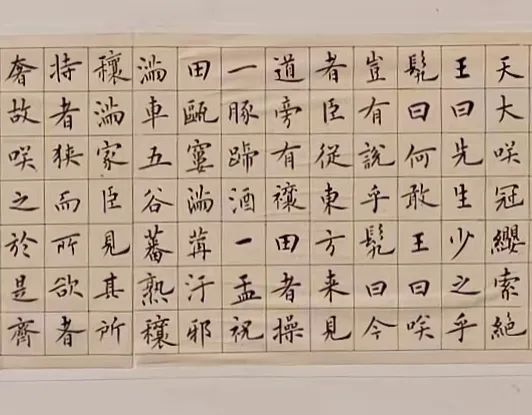 天大咲冠纓索絶
王曰先生少之乎
髡曰何敢王曰咲
豈有說乎髡曰今
者臣從東方来見
道旁有禳田者操
一豚蹄酒一盂祝
田甌窶満篝汙邪
満車五谷蕃熟穰
穰満家臣見其所
持者狭而所欲者
奢故咲之於是齊